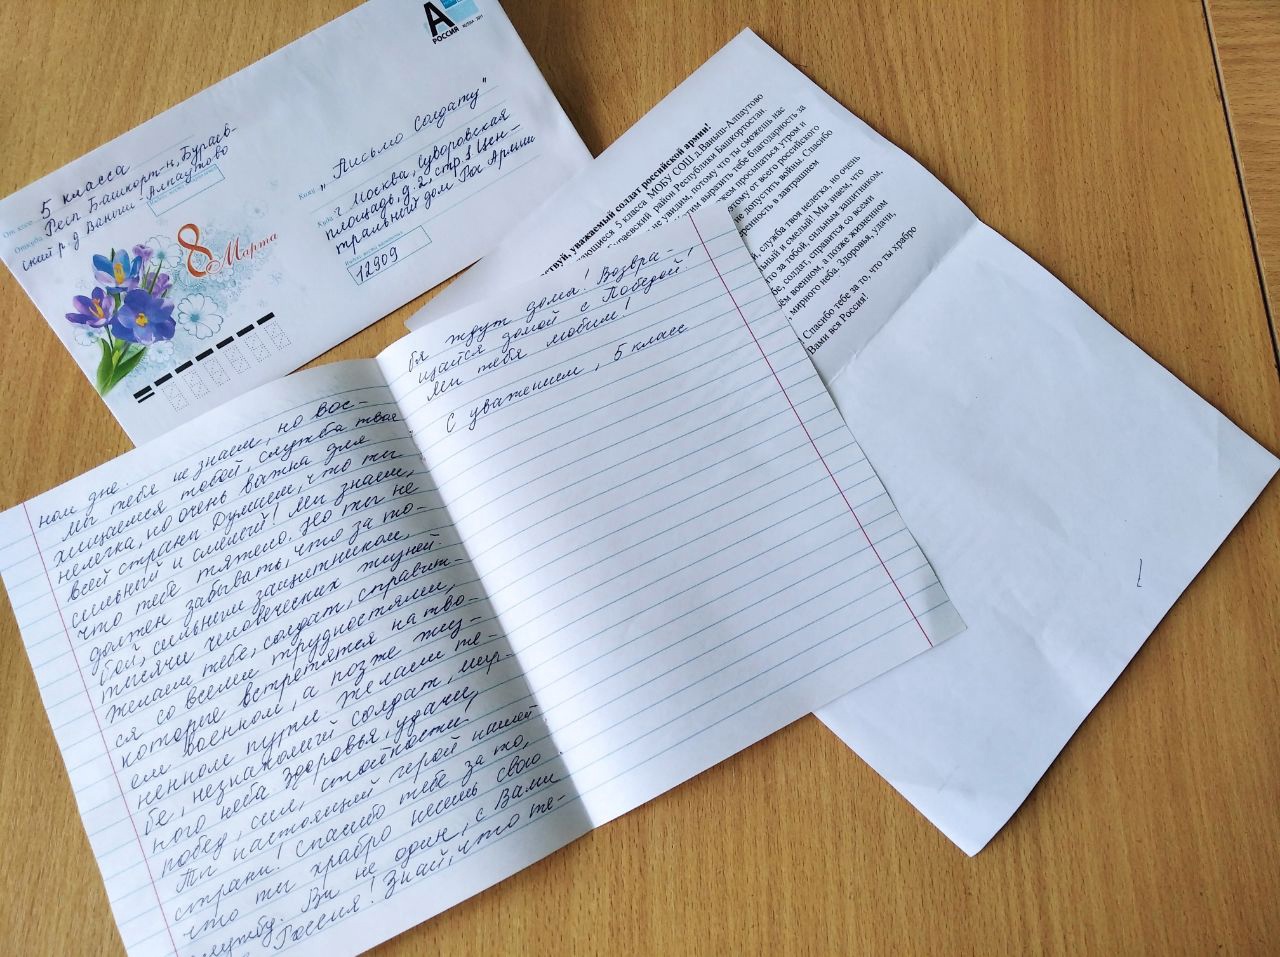 А
РОССИЯ
5 класса
Респ Башкорт-н, Бураев-
ский р. д Ваныш-Алпаутово
От кого
Откуда
8 Марта
Кому „Письмо солдату"
Куда г. Москва, Суворовская
площадь, д. 2, стр. 1 Цен-
тральный дом Рос Армии
12909
ном дне.
Мы тебя не знаем, но вос-
хищаемся тобой, служба твоя
нелегка, но очень важна для
всей страны Думаем, что ты
сильный и смелый! Мы знаем,
что тебе тяжело. Но ты не
должен забывать, что за то-
бой, сильным защитником,
тысячи человеческих жизней.
Желаем тебе, солдат, справит-
ся со всеми трудностями,
которые встретятся на тво-
ем военном, а позже жиз-
ненном пути. Желаем те-
бе, незнакомый солдат, мир-
ного неба. Здоровья, удачи,
побед, сил, стойкости!
Ты настоящий герой нашей
страны! Спасибо тебе за то,
что ты храбро несешь свою
службу. Вы не один, с Вами
Россия! Знай, что те-
бя ждут дома! Возвра-
щайся домой с Победой!
Мы тебя любим!
С уважением, 5 класс
уважаемый солдат российской армии!
5 класса МОБУ СОШ д.Ваныш-Алпаутово
район Республики Башкортостан.
не увидим, потому что ты сможешь нас
выразить тебе благодарность за
просыпаться утром и
от всего российского
не допустить войны. Спасибо
в завтрашнем
служба твоя нелегка, но очень
и смелый! Мы знаем, что
что за тобой, сильным защитником,
солдат, справится со всеми
военном, а позже жизненном
мирного неба. Здоровья, удачи,
Спасибо тебе за то, что ты храбро
Вами вся Россия!